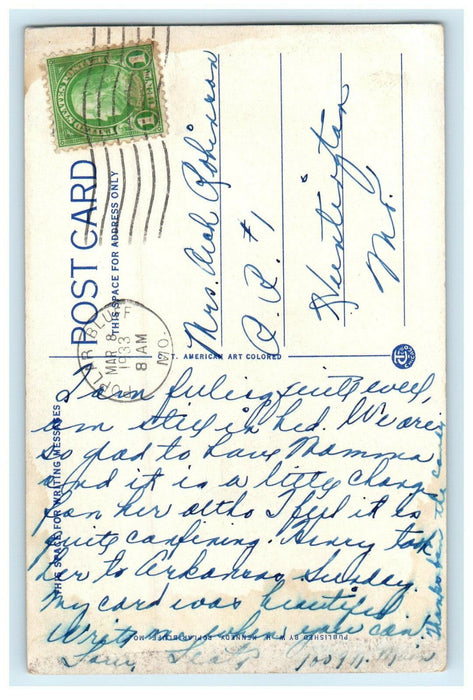 UNITED STATES POSTAGE
1 CENT 1
POST CARD
THIS SPACE FOR ADDRESS ONLY
POPLAR BLUFF
MO.
MAR 8
1933
8 AM
Mrs. Robinson
R. R. #1
Huntington
Mo.
C.T. AMERICAN ART COLORED
THIS SPACE FOR WRITING MESSAGES
I am feeling quite well,
am still in bed. We are
so glad to have Mamma
and it is a little change
for her altho I feel it is
quite confining. Henry took
her to Arkansas Sunday.
My card was beautiful
Write me when you can.
Thanks for the candy
PUBLISHED BY W. H. KENNEDY, POPLAR BLUFF, MO.
1007 N. Main